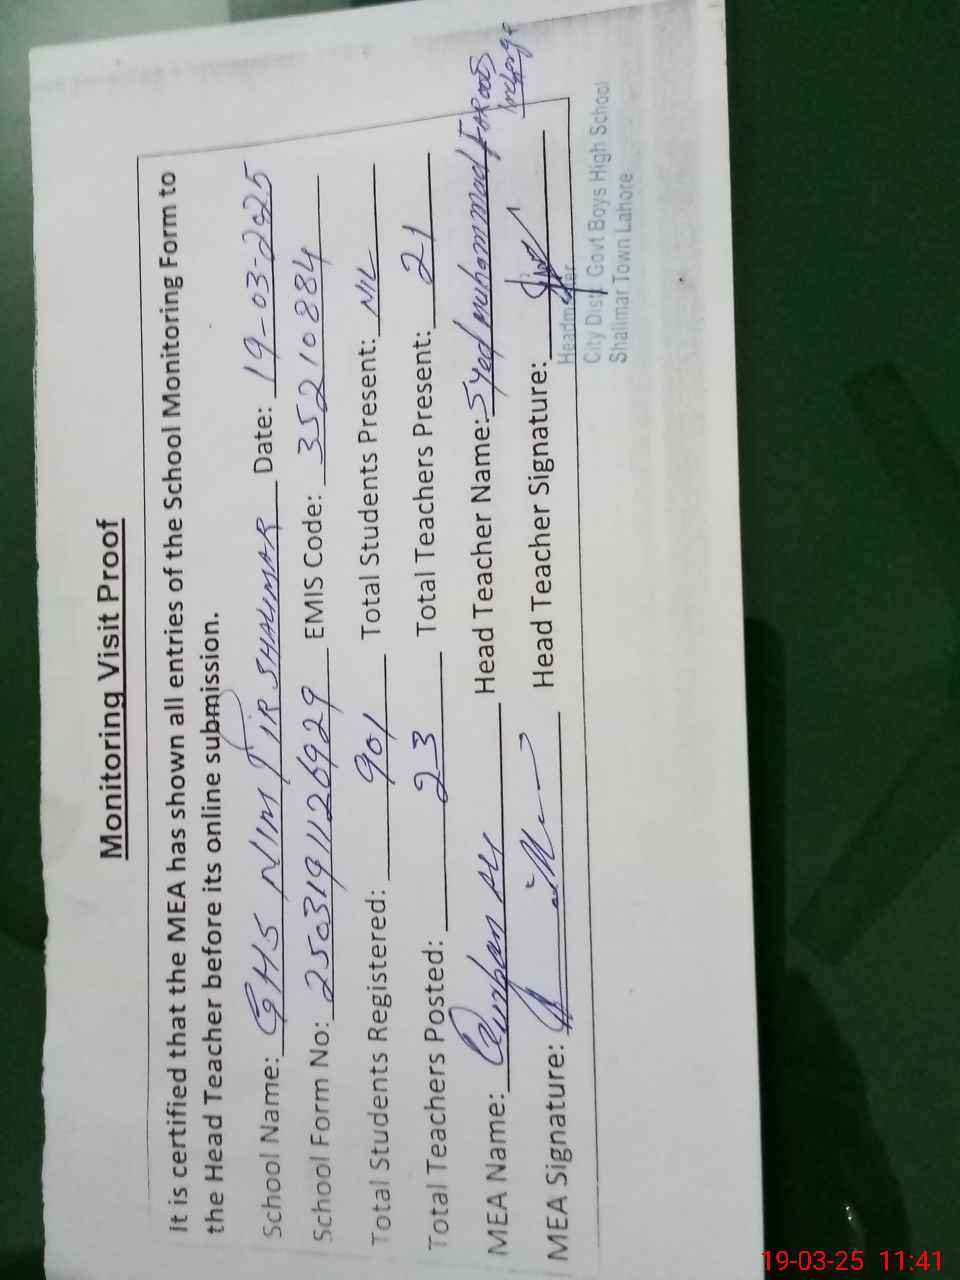 Monitoring Visit Proof
It is certified that the MEA has shown all entries of the School Monitoring Form to
the Head Teacher before its online submission.
School Name: GHS NIM TIR SHALIMAR Date: 19-03-2025
School Form No: 2503191126929 EMIS Code: 35210884
Total Students Registered: 901 Total Students Present: NIL
Total Teachers Posted: 23 Total Teachers Present: 21
MEA Name: Qurban Ali Head Teacher Name: Syed muhammad Farooq
Incharge
MEA Signature: Head Teacher Signature:
Headmaster
City Distt. Govt Boys High School
Shalimar Town Lahore
19-03-25 11:41